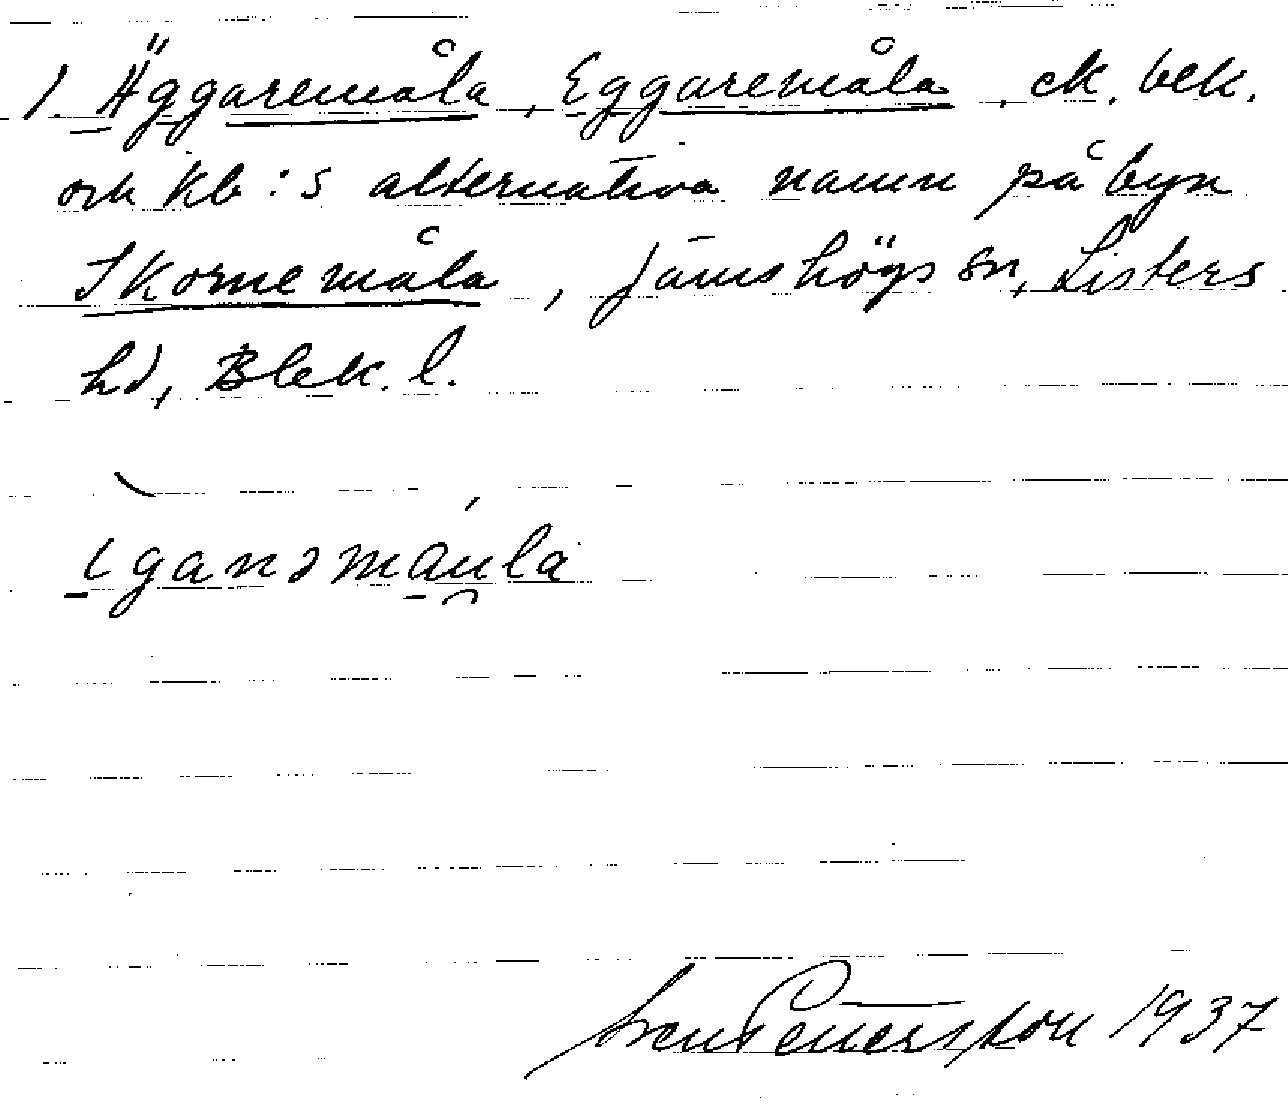 1. Äggaremåla, Eggaremåla, ek. bek.
och kb:s alternativa namn på byn
Skornemåla, Jämshögs sn, Listers
hd, Blek. l.
Sven Pettersson 1937